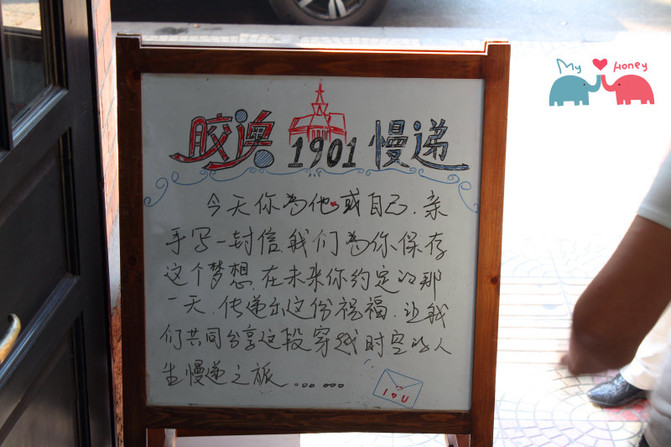 My ♥ Honey
胶澳1901慢递
今天你为他或自己,亲
手写一封信,我们为你保存
这个梦想,在未来你约定的那
一天,传递出这份祝福,让我
们共同分享这段穿越时空的人
生慢递之旅……
I ♥ U